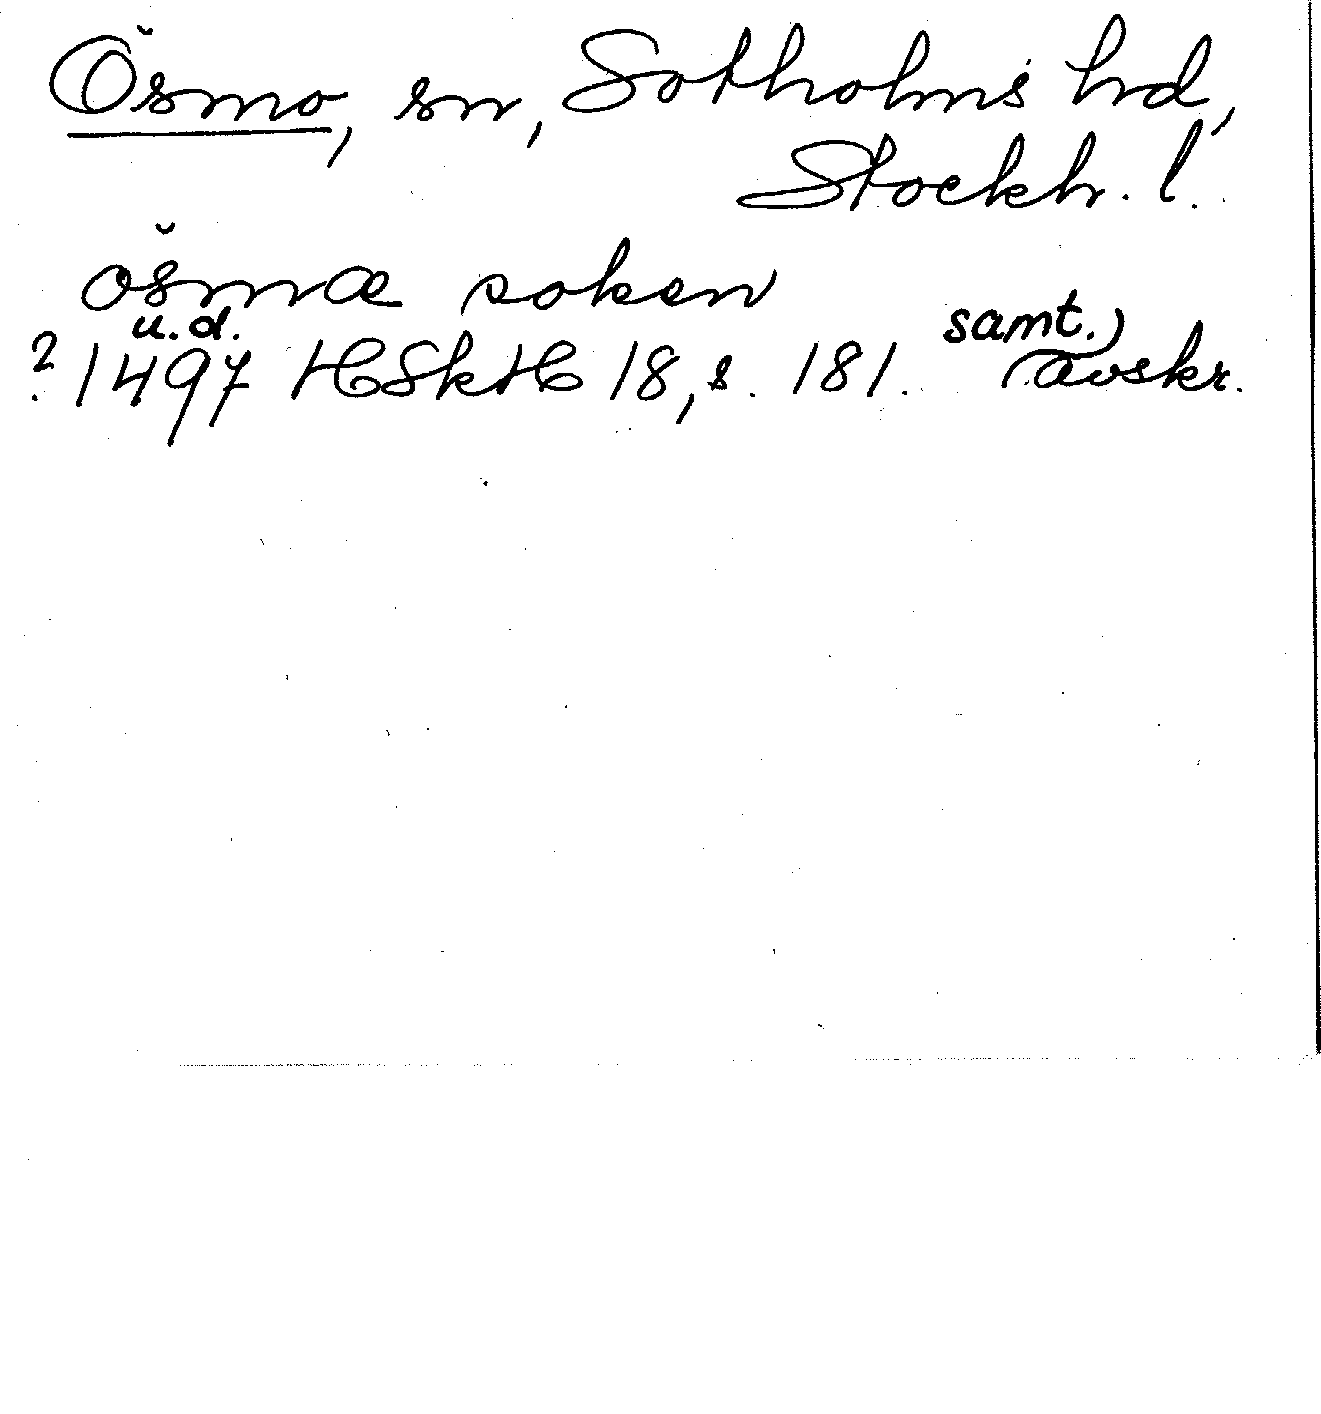 Ösmo, sn, Sotholms hd,
Stockh. l.
ösmæ soken
u.d.
? 1497 HSkH 18, s. 181.
samt.)
avskr.